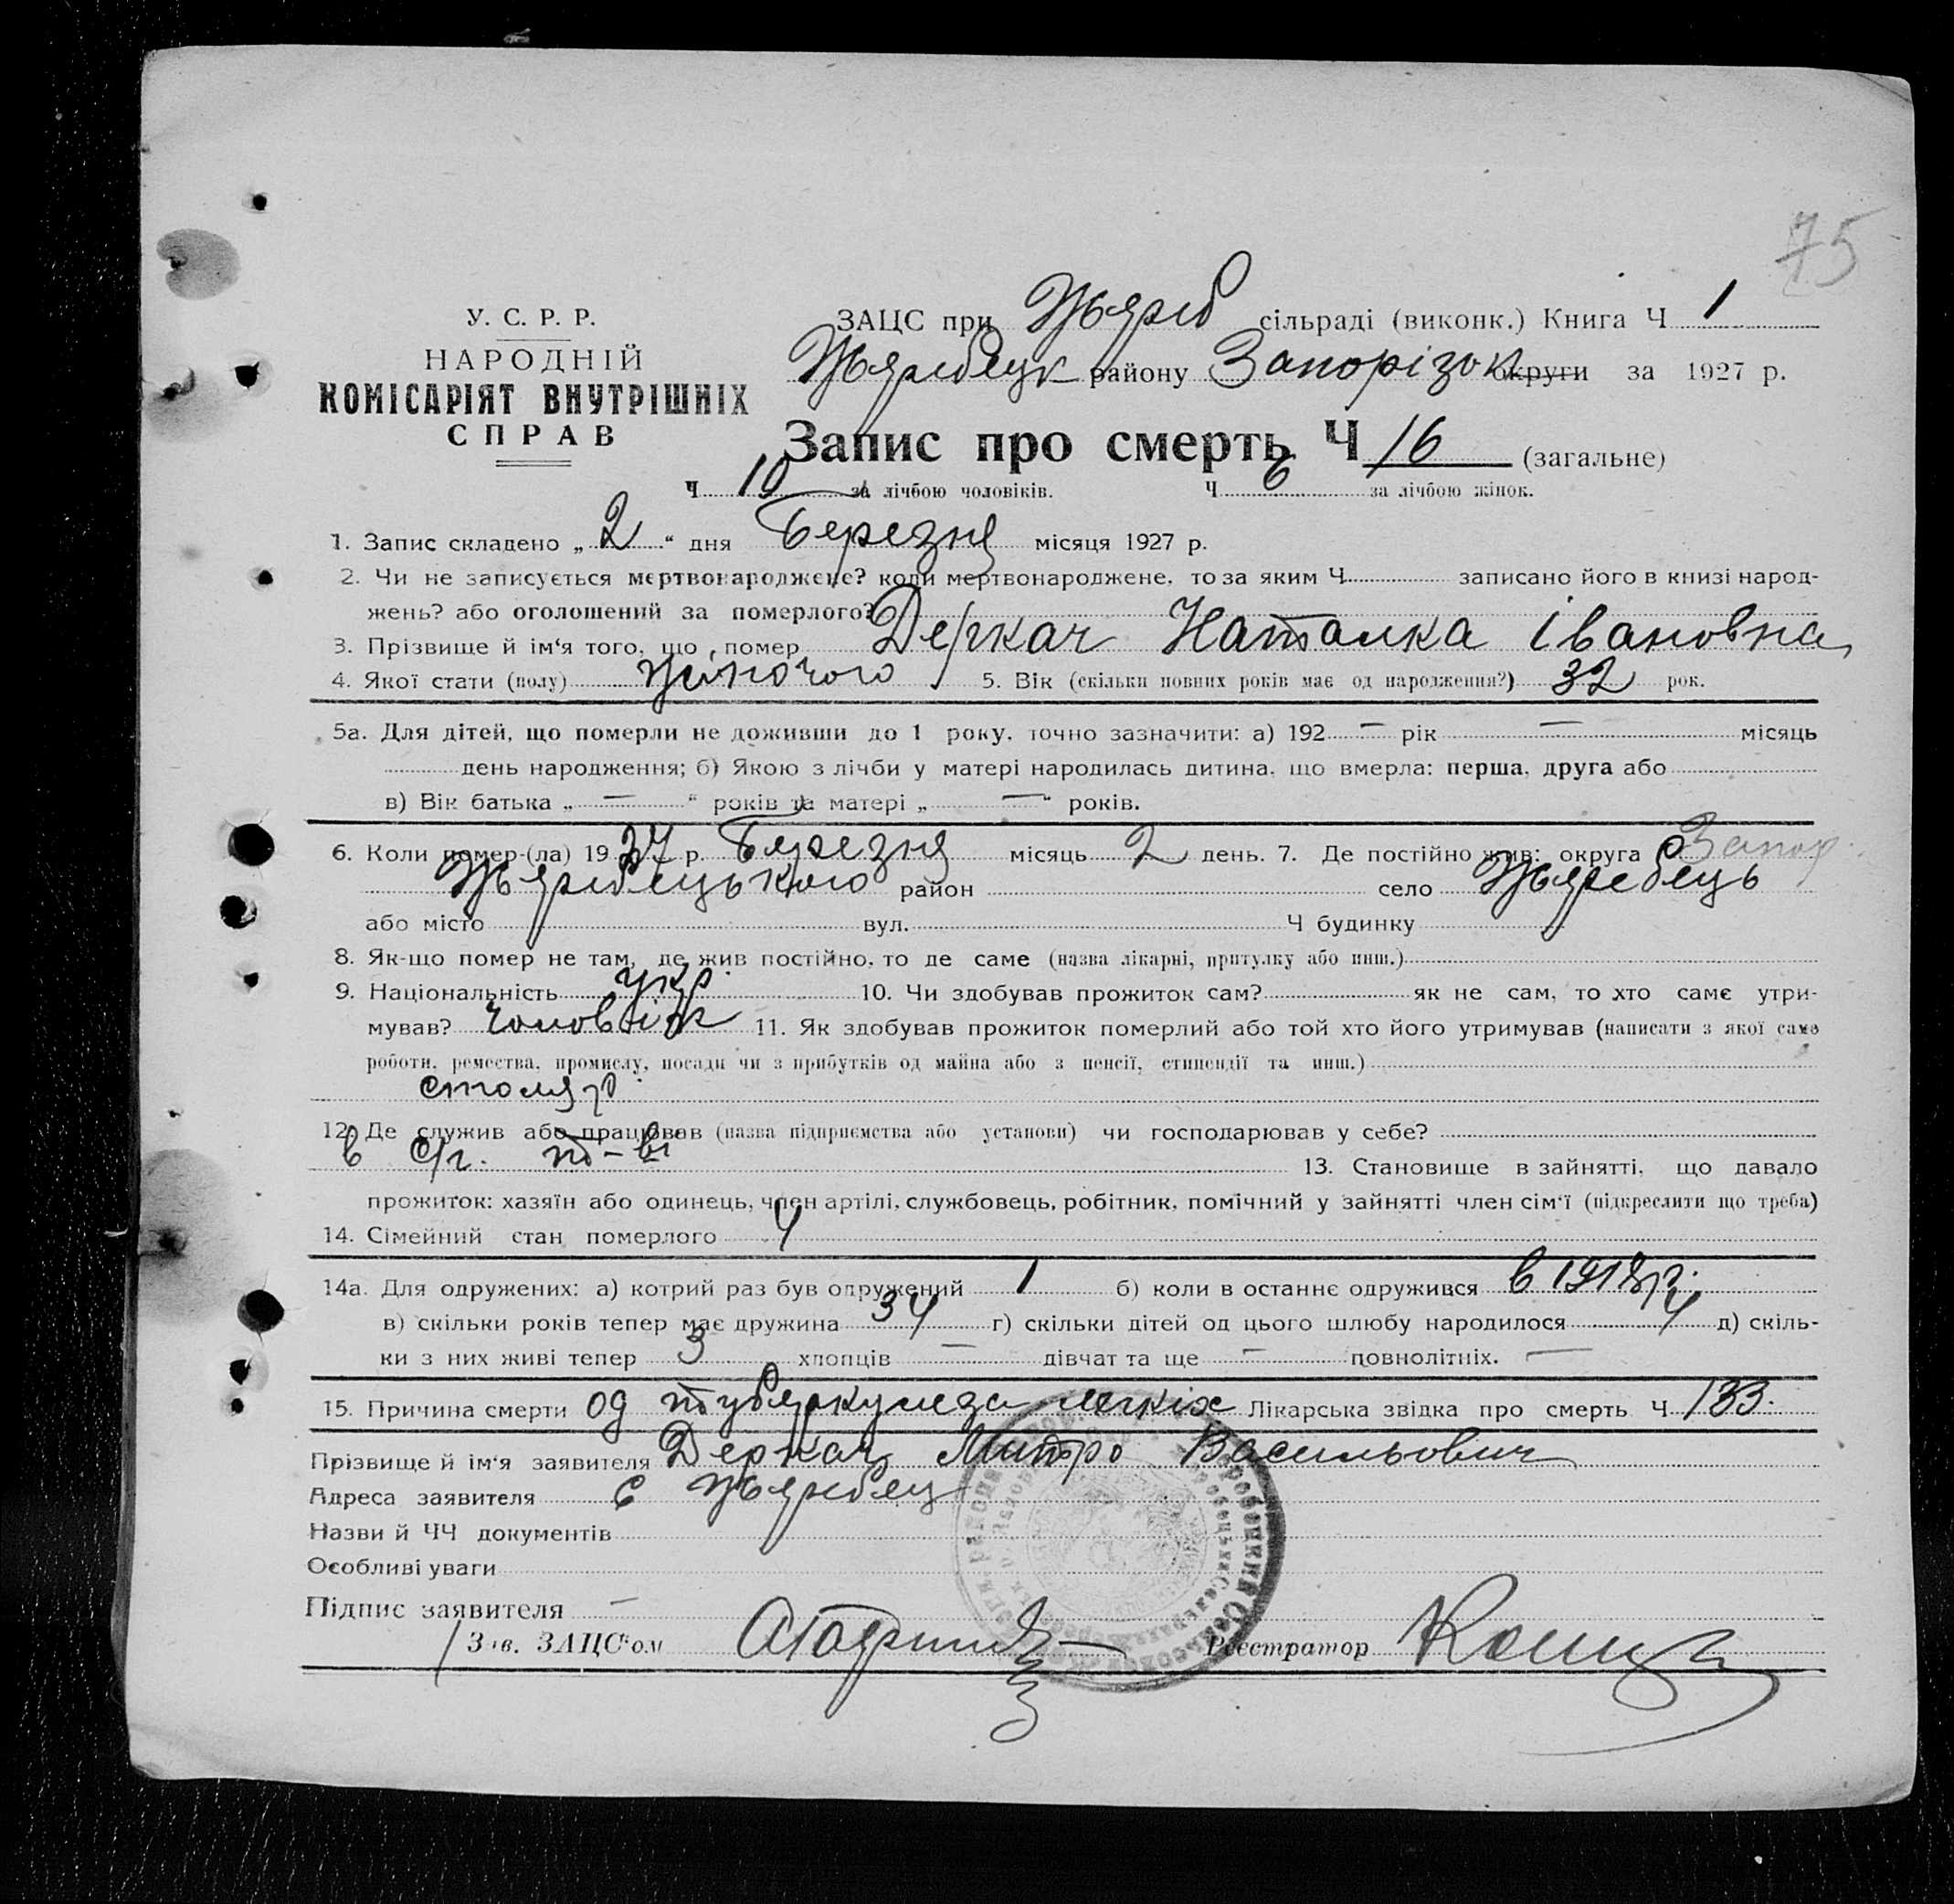 75
У. С. Р. Р.
НАРОДНІЙ
КОМІСАРІЯТ ВНУТРІШНІХ
СПРАВ
ЗАЦС при Жереб сільраді (виконк.) Книга Ч 1
Жеребецк району Запорізьк округи за 1927 р.
Запис про смерть Ч 16 (загальне)
Ч 10 за лічбою чоловіків. Ч 6 за лічбою жінок.
1. Запис складено „ 2 “ дня Березня місяця 1927 р.
2. Чи не записується мертвонароджене? коли мертвонароджене, то за яким Ч записано його в книзі народ-
жень? або оголошений за померлого?
3. Прізвище й ім‘я того, що помер Деркач Наталка Івановна
4. Якої стати (полу) жіночого 5. Вік (скільки повних років має од народження?) 32 рок.
5а. Для дітей, що померли не доживши до 1 року, точно зазначити: а) 192 — рік — місяць
день народження; б) Якою з лічби у матері народилась дитина, що вмерла: перша, друга або
в) Вік батька „ — “ років та матері „ — “ років.
6. Коли помер-(ла) 1927 р. Березня місяць 2 день. 7. Де постійно жив: округа Запор.
Жеребецького район село Жеребець
або місто вул. Ч будинку
8. Як-що помер не там, де жив постійно, то де саме (назва лікарні, притулку або инш.)
9. Національність укр. 10. Чи здобував прожиток сам? як не сам, то хто саме утри-
мував? чоловік 11. Як здобував прожиток померлий або той хто його утримував (написати з якої саме
роботи, ремества, промислу, посади чи з прибутків од майна або з пенсії, стипендії та инш.)
столяр
12. Де служив або працював (назва підприємства або установи) чи господарював у себе?
в с/г. т-ві 13. Становище в зайнятті, що давало
прожиток: хазяїн або одинець, член артілі, службовець, робітник, помічний у зайнятті член сім‘ї (підкреслити що треба)
14. Сімейний стан померлого 4
14а. Для одружених: а) котрий раз був одружений 1 б) коли в останнє одружився в 1918 р.
в) скільки років тепер має дружина 34 г) скільки дітей од цього шлюбу народилося 4 д) скіль-
ки з них живі тепер 3 хлопців — дівчат та ще — повнолітніх. —
15. Причина смерти од туберкулеза легкіх Лікарська звідка про смерть Ч 133.
Прізвище й ім‘я заявителя Деркач Митро Васильович
Адреса заявителя с Жеребец
Назви й ЧЧ документів
Особливі уваги
Підпис заявителя —
Зав. ЗАЦС‘ом Реєстратор